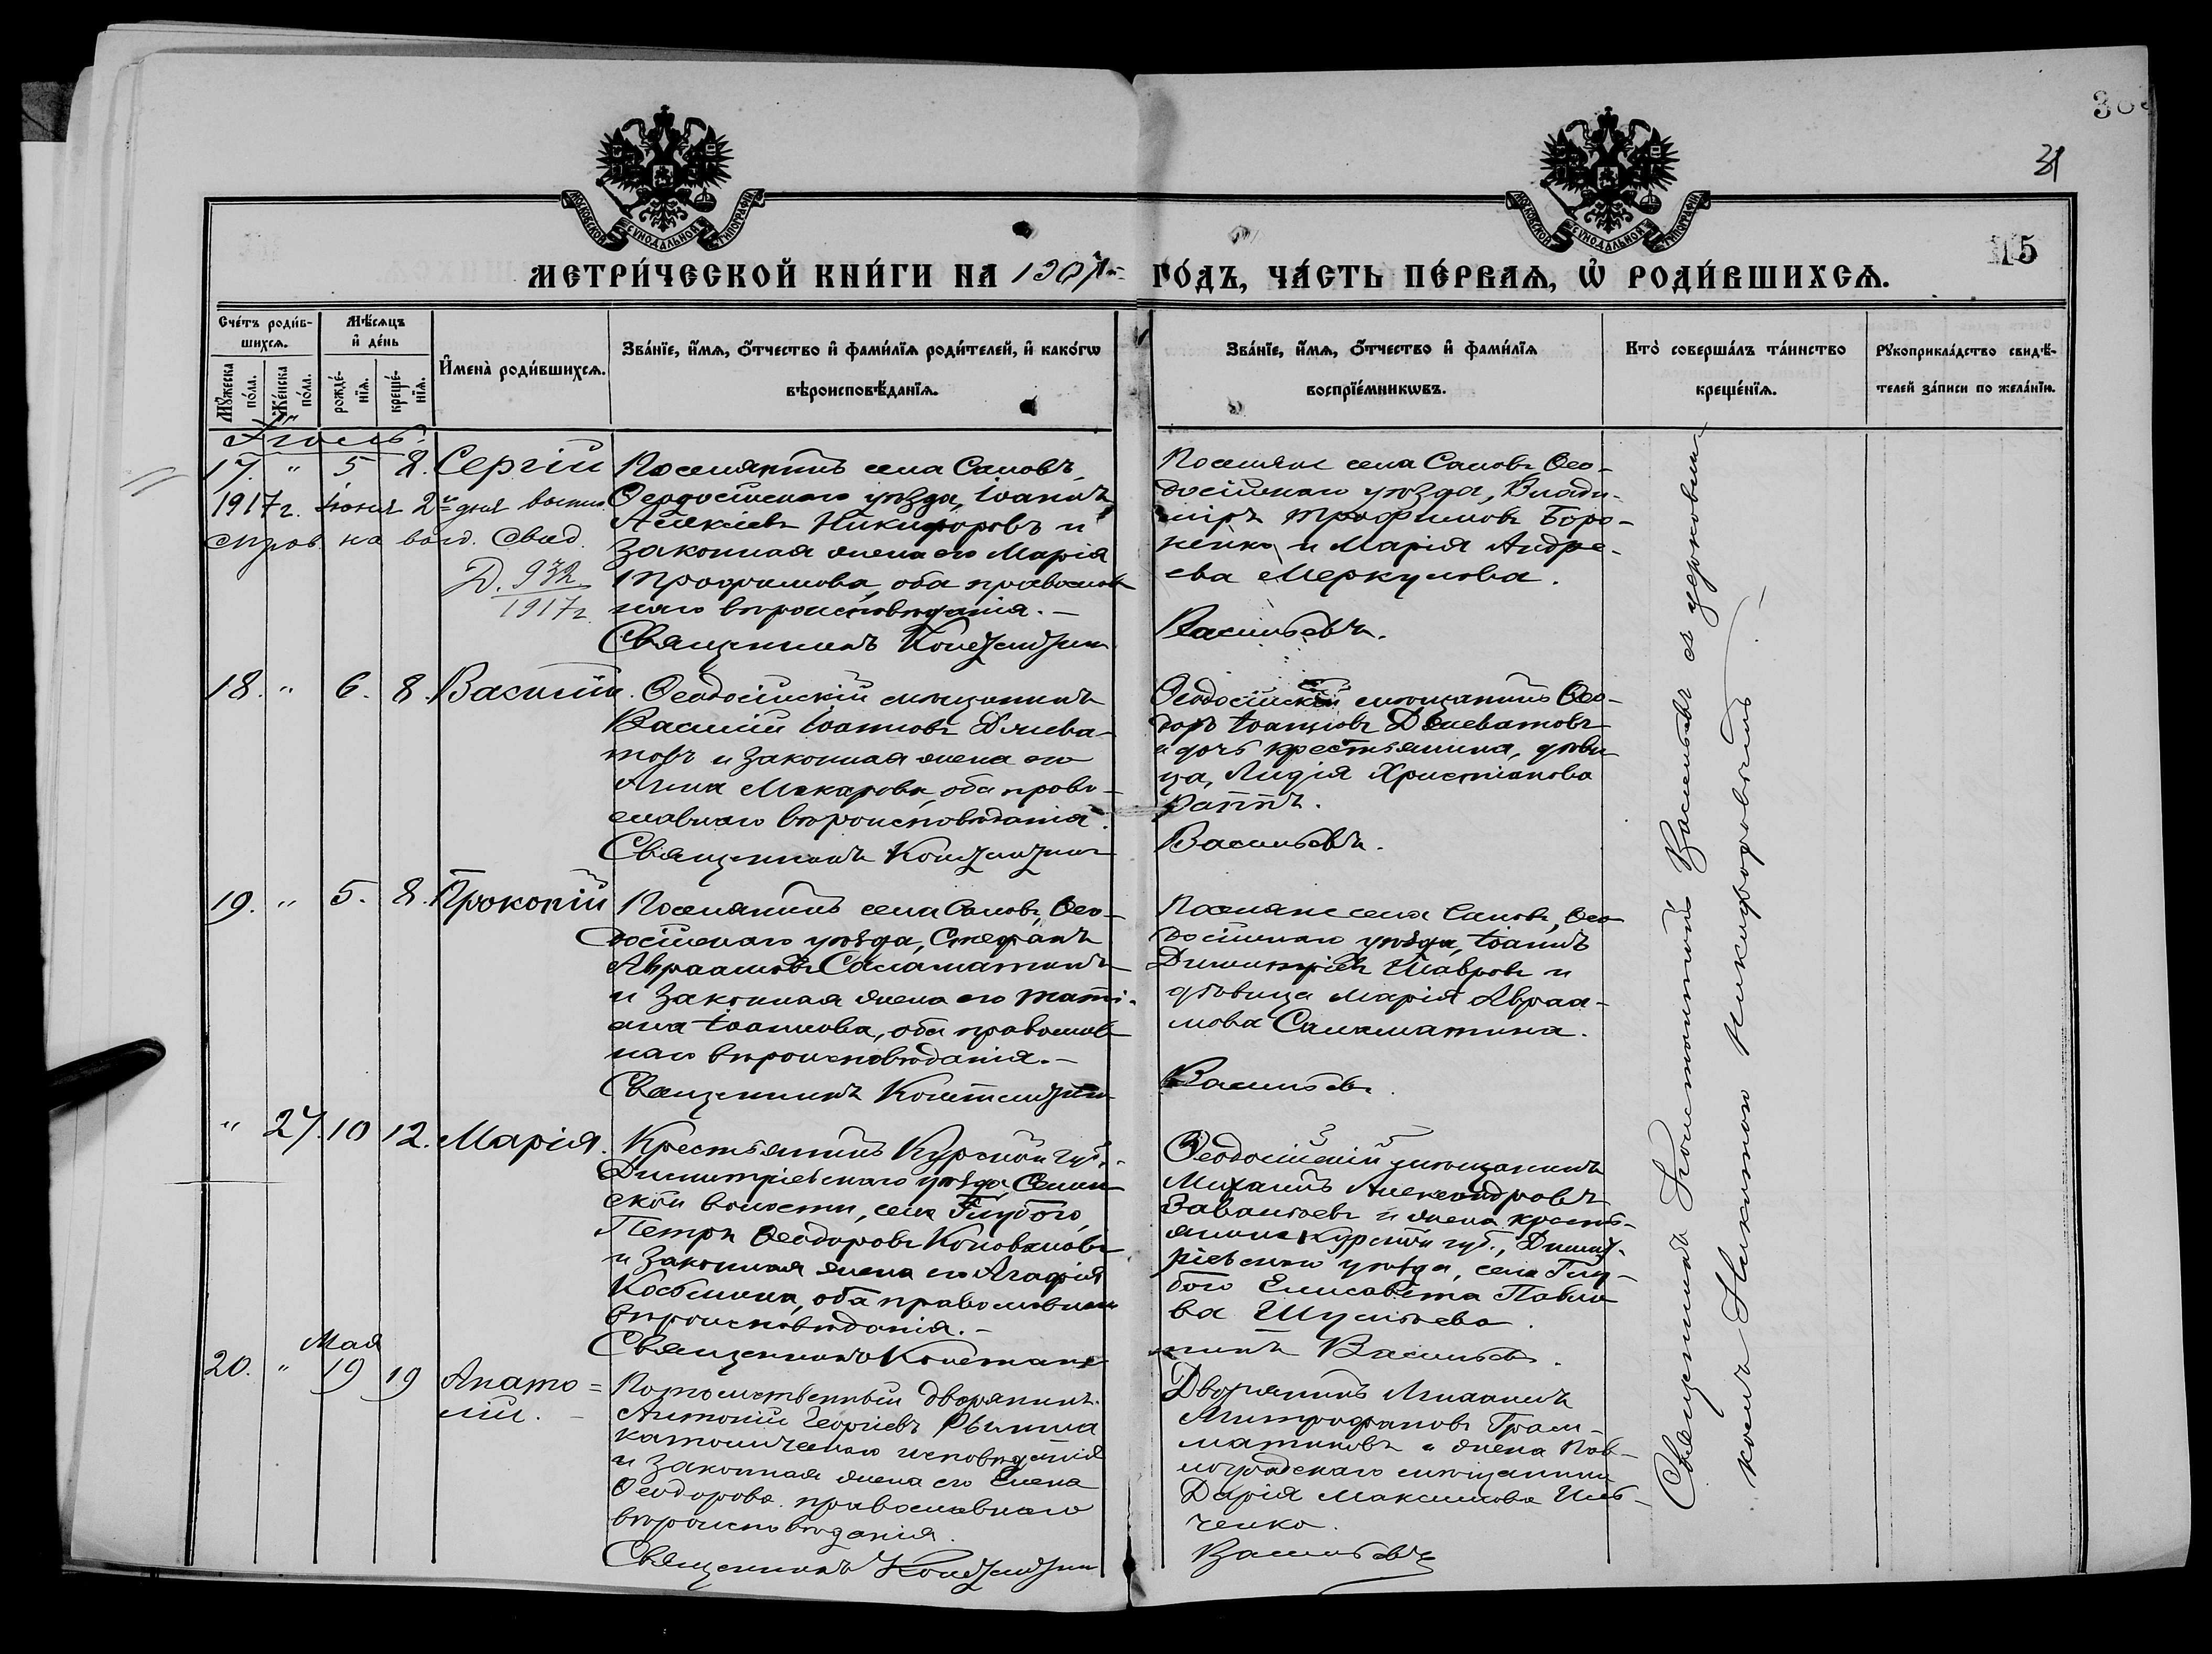 31
15
МЕТРИ́ЧЕСКОЙ КНИ́ГИ НА 1907й ГО́ДЪ, ЧА́СТЬ ПЕ́РВАѦ, Ѡ҆ РОДИ́ВШИХСѦ.
Сче́тъ роди́в-
шихсѧ.
Мꙋ́жеска по́ла.
Же́нска по́ла.
Мѣ́сѧцъ и҆ де́нь
рожде́-
нїѧ.
креще́-
нїѧ.
И҆мена̀ роди́вшихсѧ.
Зва́нїе, и҆́мѧ, ѻ҆́тчество и҆ фами́лїѧ роди́телей, и҆ како́гѡ
вѣроисповѣ́данїѧ.
Зва́нїе, и҆́мѧ, ѻ҆́тчество и҆ фами́лїѧ
воспрїе́мникѡвъ.
Кто̀ соверша́лъ та́инство
креще́нїѧ.
Рꙋкоприкла́дство свидѣ́-
телей за́писи по жела́нїю.
17. " 5 8. Сергій
1917 г. Іюня 2го дня
на свид.
Д. 932
1917 г.
Поселянинъ села Саловъ,
Ѳеодосійскаго уѣзда, Іоаннъ
Алексіевъ Никифоровъ и
законная жена его Марія
Трофимова, оба православ
наго вѣроисповѣданія. —
Священникъ Константинъ
Поселяне села Саловъ Ѳео-
досійскаго уѣзда, Влади-
міръ Трофимовъ Боро-
ненко и Марія Андре-
ева Меркулова.
Васильевъ.
18. " 6. 8. Василій.
Ѳеодосійскій мѣщанинъ
Василій Іоанновъ Длева-
товъ и законная жена его
Анна Макарова, оба право-
славнаго вѣроисповѣданія.
Священникъ Константинъ
Ѳеодосійскій мѣщанинъ Ѳео-
доръ Іоанновъ Длеватовъ
и дочь крестьянина, дѣви
ца, Лидія Христіанова
Васильевъ.
19. " 5. 8. Прокопій
Поселянинъ села Саловъ, Ѳео-
досійскаго уѣзда, Стефанъ
Авраамовъ Саламатинъ
и законная жена его Таті-
ана Іоаннова, оба православ
наго вѣроисповѣданія. —
Священникъ Константинъ
Поселяне села Саловъ, Ѳео
досійскаго уѣзда, Іоаннъ
Димитріевъ Шавровъ и
дѣвица Марія Авраа-
мова Саламатина.
Васильевъ
" 27. 10 12. Марія.
Крестьянинъ Курской губ.
Димитріевскаго уѣзда
ской волости, села Глубого,
Петръ Ѳеодоровъ Коноваловъ
и законная жена его Агафія
Косьмина, оба православнаго
вѣроисповѣданія. —
Священникъ Констан-
Ѳеодосійскій мѣщанинъ
Михаилъ Александровъ
и жена кресть-
янина Курской губ., Димит-
ріевскаго уѣзда, села Глу-
бого Елисавета Павло
ва
тинъ Васильевъ.
Мая
20. " 19 19 Анато=
лій. —
Потомственный дворянинъ
Антоній Георгіевъ
католическаго исповѣданія
и законная жена его Елена
Ѳеодорова православнаго
вѣроисповѣданія.
Священникъ Константинъ
Дворянинъ Михаилъ
Митрофановъ Грам-
матиковъ и жена Пав-
лоградскаго мѣщанина
Дарія Максимова Иль-
ченко.
Васильевъ
Священникъ Константинъ Васильевъ съ церковни-
комъ Никитою Никифоровымъ. —